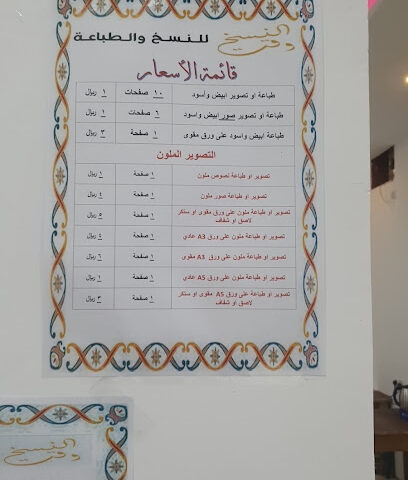 النسخ للنسخ والطباعة
وقت
قائمة الأسعار
طباعة او تصوير ابيض وأسود ١٠ صفحات ١ ريال
طباعة او تصوير صور ابيض واسود ٦ صفحات ١ ريال
طباعة ابيض واسود على ورق مقوى ١ صفحة ٣ ريال
التصوير الملون
تصوير او طباعة نصوص ملون ١ صفحة ١ ريال
تصوير او طباعة صور ملون ١ صفحة ٤ ريال
تصوير او طباعة ملون على ورق مقوى او ستكر ١ صفحة ٥ ريال
لاصق او شفاف
تصوير او طباعة ملون على ورق A3 عادي ١ صفحة ٤ ريال
تصوير او طباعة ملون على ورق A3 مقوى ١ صفحة ٦ ريال
تصوير او طباعة ملون على ورق A5 عادي ١ صفحة ١ ريال
تصوير او طباعة على ورق A5 مقوى او ستكر ١ صفحة ٣ ريال
لاصق او شفاف
النسخ
وقت